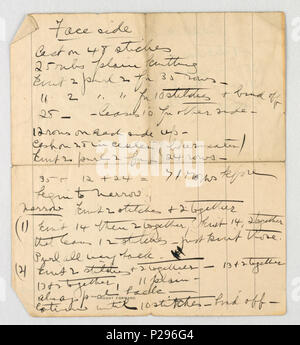 Face side
Cast on 48 stitches
25 ribs plain knitting
Knit 2 purl 2 for 35 rows
" 2 " " for 10 stitches + bind off
25 — leaves 10 for other side —
12 rows on each side up —
Cast on 25 in center
Knit 2 purl 2 for 24 rows —
35 + 12 + 24 = 71 rows before
begin to narrow.
Narrow Knit 2 stitches + 2 together
(1) Knit 14 then 2 together, Knit 14, 2 together
that leaves 12 stitches just knit those
Purl all way back.
(2) Knit 2 stitches + 2 together — 13 + 2 together
13 + 2 together, 11 plain —
always purl back
until 10 stitches — bind off —
alamy
Image ID: P296G4
www.alamy.com